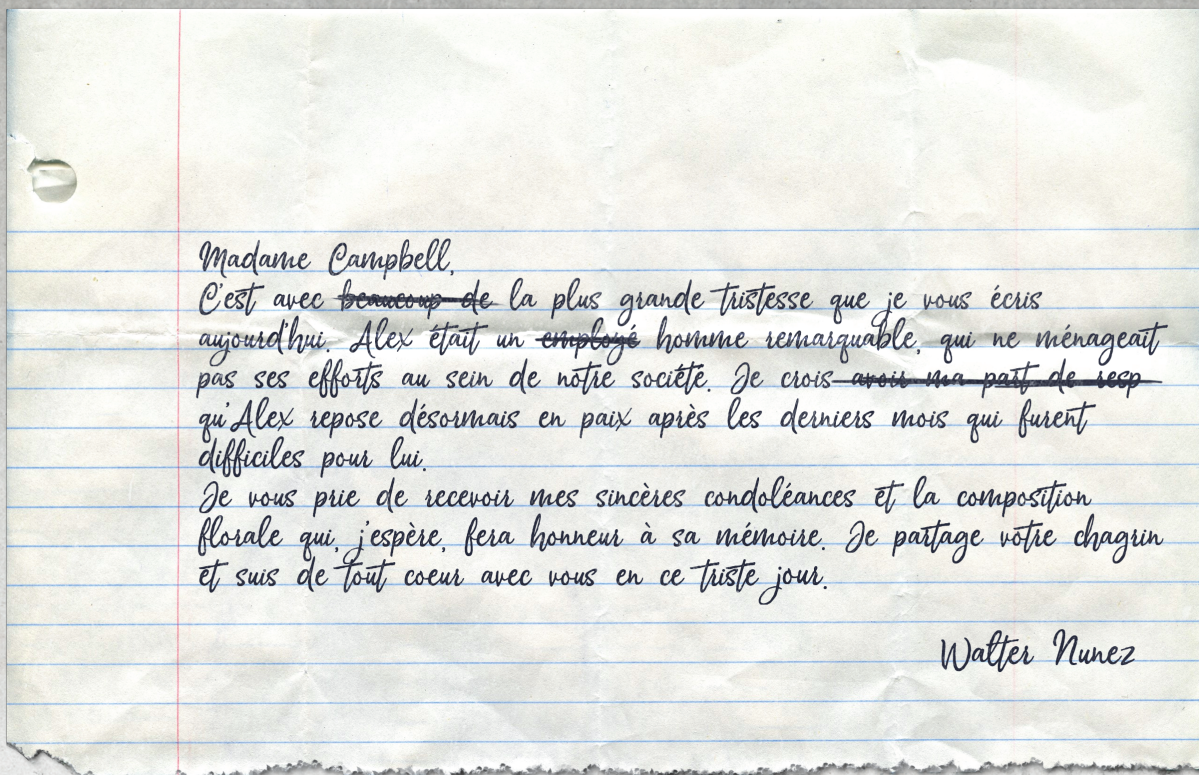 Madame Campbell,
C'est avec beaucoup de la plus grande tristesse que je vous écris
aujourd'hui. Alex était un employé homme remarquable, qui ne ménageait
pas ses efforts au sein de notre société. Je crois avoir ma part de resp
qu'Alex repose désormais en paix après les derniers mois qui furent
difficiles pour lui.
Je vous prie de recevoir mes sincères condoléances et la composition
florale qui, j'espère, fera honneur à sa mémoire. Je partage votre chagrin
et suis de tout coeur avec vous en ce triste jour.
Walter Nunez